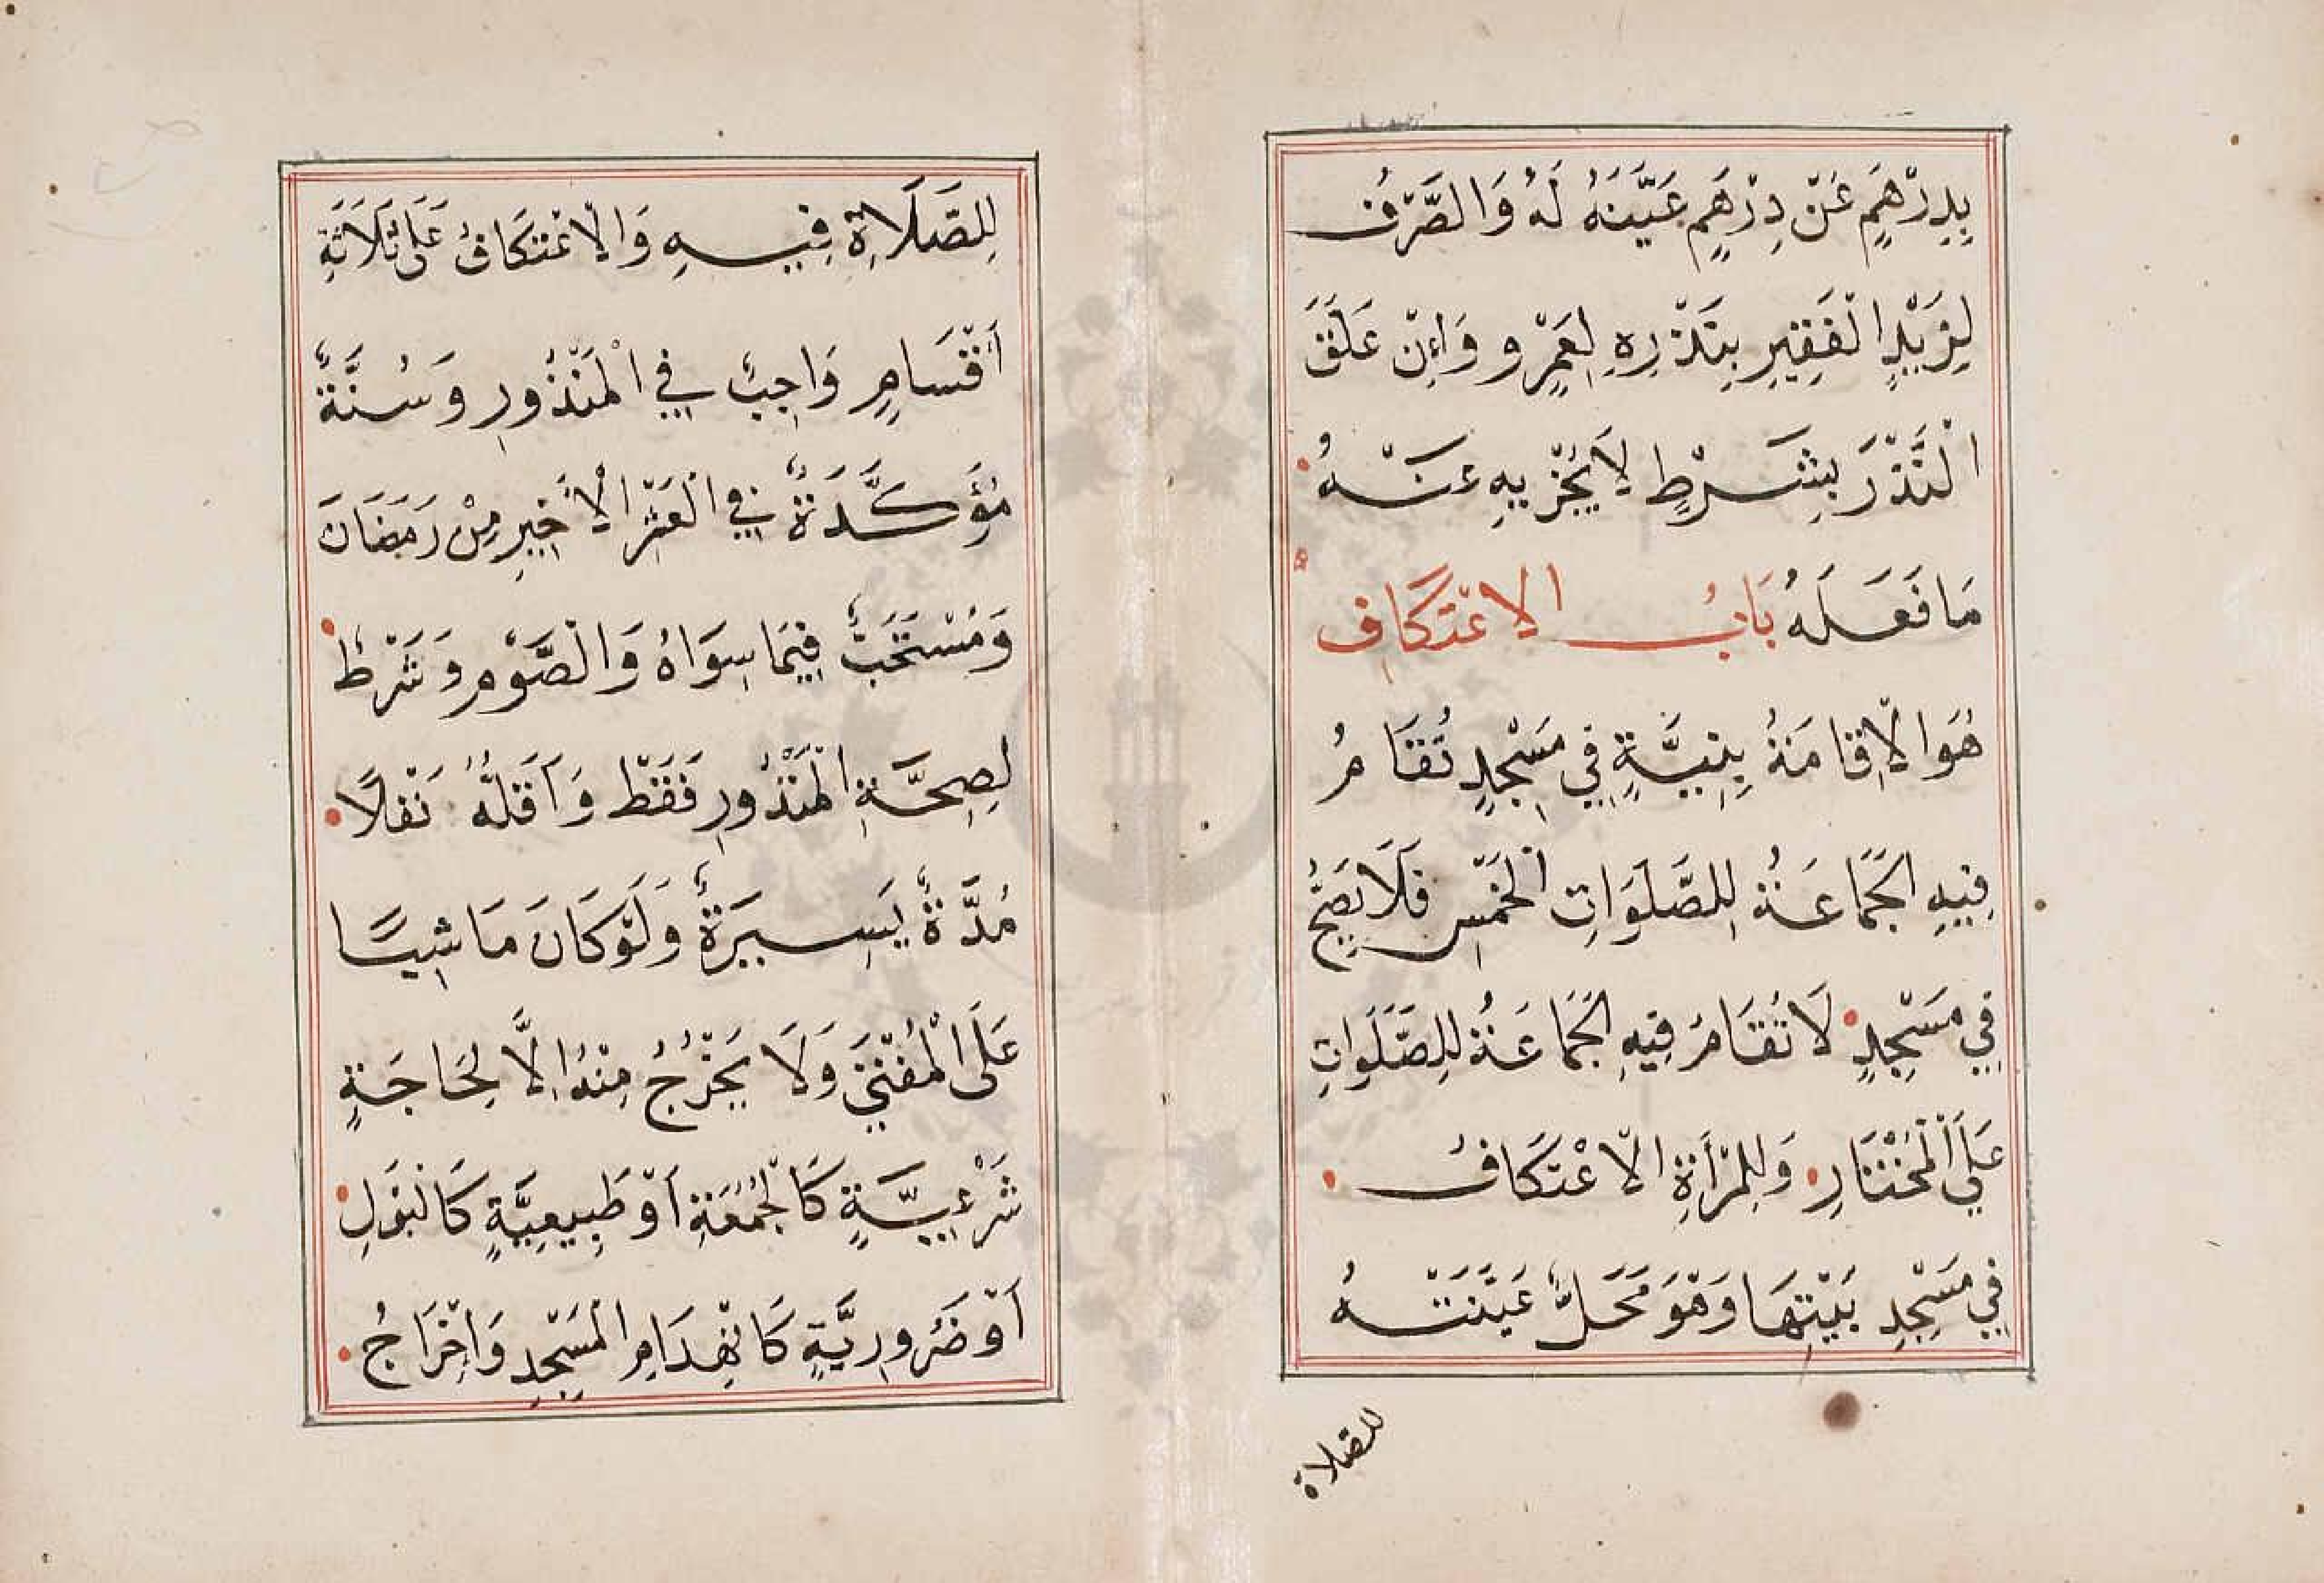 بِدِرْهَمٍ عَنْ دِرْهَمٍ عَيَّنَهُ لَهُ وَالصَّرْفُ
لِزَيْدٍ الْفَقِيرِ بِنَذْرِهِ لِعَمْرٍو وَاِنْ عَلَّقَ
الْنَّذْرَ بِشَرْطٍ لَا يُجْزِيهِ عَنْهُ
مَا فَعَلَهُ بَابُ الاعْتِكَافِ
هُوَ الْاِقَامَةُ بِنِيَّةٍ فِي مَسْجِدٍ تُقَامُ
فِيهِ الجَمَاعَةُ لِلصَّلَوَاتِ الْخَمْسِ فَلَا يَصِحُّ
فِي مَسْجِدٍ لَا تُقَامُ فِيهِ الْجَمَاعَةُ لِلصَّلَوَاتِ
عَلَى الْمُخْتَارِ وَلِلْمَرْأَةِ الْاعْتَكَافُ
فِي مَسْجِدِ بَيْتِهَا وَهْوَ مَحَلٌّ عَيَّنَتْهُ
للصلاة
لِلصَّلَاةِ فِيهِ وَالْاعْتِكَافُ عَلَى ثَلَاثَةِ
أَقْسَامٍ وَاجِبٌ فِي الْمَنْذُورِ وَسُنَّةٌ
مُؤَكَّدَةٌ فِي الْعَشْرِ الْأَخِيرِ مِنْ رَمَضَانَ
وَمُسْتَحَبٌّ فِيمَا سِوَاهُ وَالْصَّوْمُ وَشَرْطُ
لِصِحَّةِ الْمَنْذُورِ فَقَطْ وَاَقَلُّهُ نَفْلًا
مُدَّةٌ يَسِيرَةٌ وَلَوْ كَانَ مَاشِيًا
عَلَى الْمُفْتَى وَلَا يَخْرُجُ مِنْهُ اِلَّا لِحَاجَةٍ
شَرْعِيَّةٍ كَالْجُمُعَةِ اَوْ طَبِيعِيَّةٍ كَالبَوْلِ
اَوْ ضَرُورِيَّةٍ كَانْهِدَامِ الْمَسْجِدِ وَاِخْرَاجُ